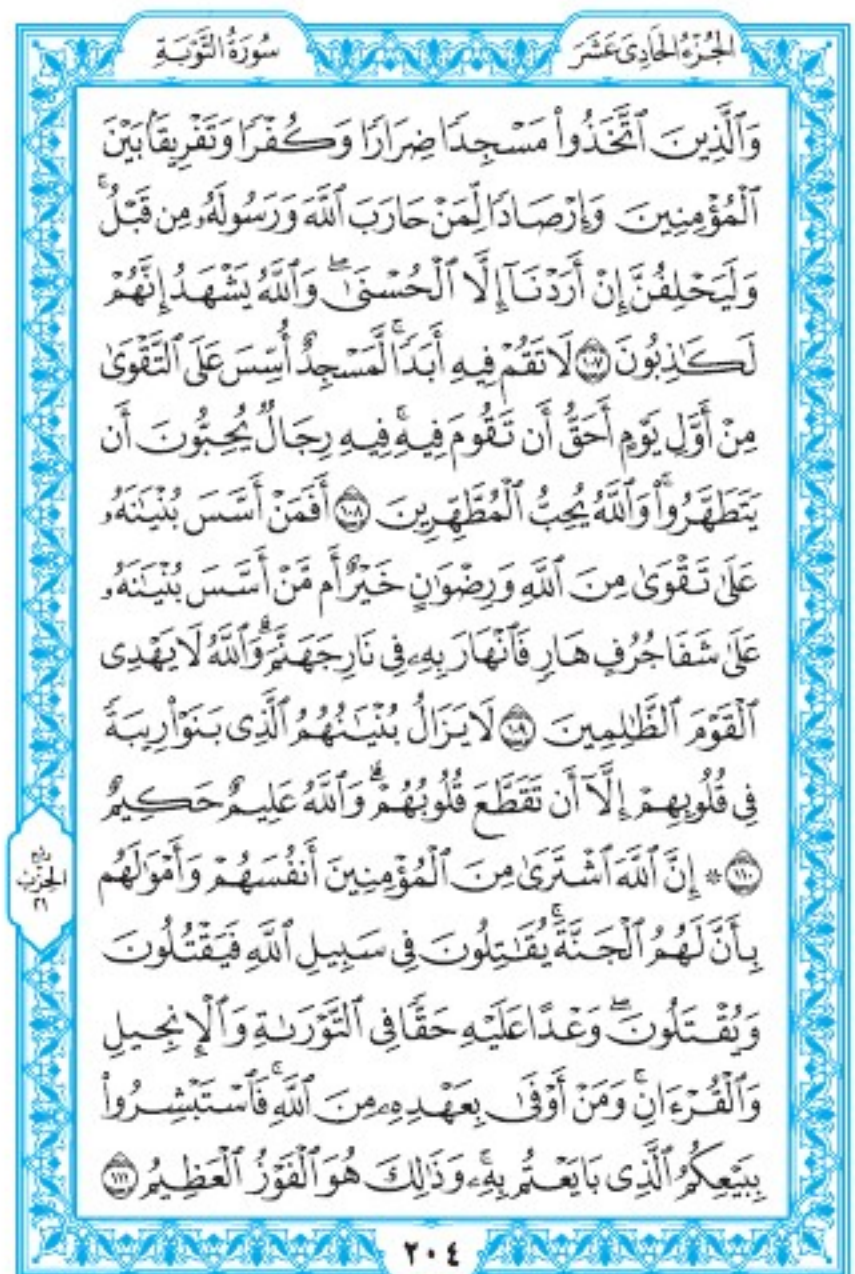 الجُزْءُ الحَادِى عَشَرَ
سُورَةُ التَّوْبَةِ
وَٱلَّذِينَ ٱتَّخَذُوا۟ مَسْجِدًا ضِرَارًا وَكُفْرًا وَتَفْرِيقًۢا بَيْنَ
ٱلْمُؤْمِنِينَ وَإِرْصَادًا لِّمَنْ حَارَبَ ٱللَّهَ وَرَسُولَهُۥ مِن قَبْلُ ۚ
وَلَيَحْلِفُنَّ إِنْ أَرَدْنَآ إِلَّا ٱلْحُسْنَىٰ ۖ وَٱللَّهُ يَشْهَدُ إِنَّهُمْ
لَكَـٰذِبُونَ ١٠٧ لَا تَقُمْ فِيهِ أَبَدًا ۚ لَّمَسْجِدٌ أُسِّسَ عَلَى ٱلتَّقْوَىٰ
مِنْ أَوَّلِ يَوْمٍ أَحَقُّ أَن تَقُومَ فِيهِ ۚ فِيهِ رِجَالٌ يُحِبُّونَ أَن
يَتَطَهَّرُوا۟ ۚ وَٱللَّهُ يُحِبُّ ٱلْمُطَّهِّرِينَ ١٠٨ أَفَمَنْ أَسَّسَ بُنْيَـٰنَهُۥ
عَلَىٰ تَقْوَىٰ مِنَ ٱللَّهِ وَرِضْوَٰنٍ خَيْرٌ أَم مَّنْ أَسَّسَ بُنْيَـٰنَهُۥ
عَلَىٰ شَفَا جُرُفٍ هَارٍ فَٱنْهَارَ بِهِۦ فِى نَارِ جَهَنَّمَ ۗ وَٱللَّهُ لَا يَهْدِى
ٱلْقَوْمَ ٱلظَّـٰلِمِينَ ١٠٩ لَا يَزَالُ بُنْيَـٰنُهُمُ ٱلَّذِى بَنَوْا۟ رِيبَةً
فِى قُلُوبِهِمْ إِلَّآ أَن تَقَطَّعَ قُلُوبُهُمْ ۗ وَٱللَّهُ عَلِيمٌ حَكِيمٌ
١١٠ * إِنَّ ٱللَّهَ ٱشْتَرَىٰ مِنَ ٱلْمُؤْمِنِينَ أَنفُسَهُمْ وَأَمْوَٰلَهُم
بِأَنَّ لَهُمُ ٱلْجَنَّةَ ۚ يُقَـٰتِلُونَ فِى سَبِيلِ ٱللَّهِ فَيَقْتُلُونَ
وَيُقْتَلُونَ ۖ وَعْدًا عَلَيْهِ حَقًّا فِى ٱلتَّوْرَىٰةِ وَٱلْإِنجِيلِ
وَٱلْقُرْءَانِ ۚ وَمَنْ أَوْفَىٰ بِعَهْدِهِۦ مِنَ ٱللَّهِ ۚ فَٱسْتَبْشِرُوا۟
بِبَيْعِكُمُ ٱلَّذِى بَايَعْتُم بِهِۦ ۚ وَذَٰلِكَ هُوَ ٱلْفَوْزُ ٱلْعَظِيمُ ١١١
ربع
الحزب
٢١
٢٠٤